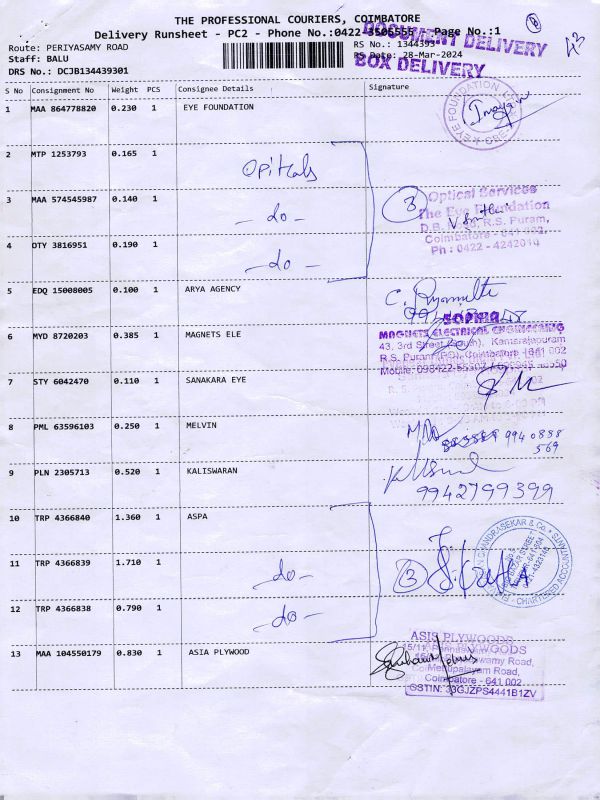 THE PROFESSIONAL COURIERS, COIMBATORE
Delivery Runsheet - PC2 - Phone No.:0422-3505555 Page No.:1
DOCUMENT DELIVERY
BOX DELIVERY
Route: PERIYASAMY ROAD
RS No.: 1344393
Staff: BALU
RS Date: 28-Mar-2024
DRS No.: DCJB134439301
S No Consignment No Weight PCS Consignee Details Signature
1 MAA 864778820 0.230 1 EYE FOUNDATION
2 MTP 1253793 0.165 1
Opticals
3 MAA 574545987 0.140 1
- do -
3
Optical Services
The Eye Foundation
D.B. R.S. Puram,
Coimbatore - 641 002.
Ph : 0422 - 4242014
4 DTY 3816951 0.190 1
- do -
5 EDQ 15008005 0.100 1 ARYA AGENCY
6 MYD 8720203 0.385 1 MAGNETS ELE
MAGNETS ELECTRICAL ENGINEERING
43, 3rd Street (South), Kamarajapuram
R.S. Puram (PO), Coimbatore 641 002
7 STY 6042470 0.110 1 SANAKARA EYE
8 PML 63596103 0.250 1 MELVIN
9940888
569
9 PLN 2305713 0.520 1 KALISWARAN
9942799399
10 TRP 4366840 1.360 1 ASPA
11 TRP 4366839 1.710 1
- do -
3
CHARTERED ACCOUNTANTS
12 TRP 4366838 0.790 1
- do -
13 MAA 104550179 0.830 1 ASIA PLYWOOD
ASIS PLYWOODS
Mettupalayam Road,
Coimbatore - 641 002
GSTIN: 33GJZPS4441B1ZV